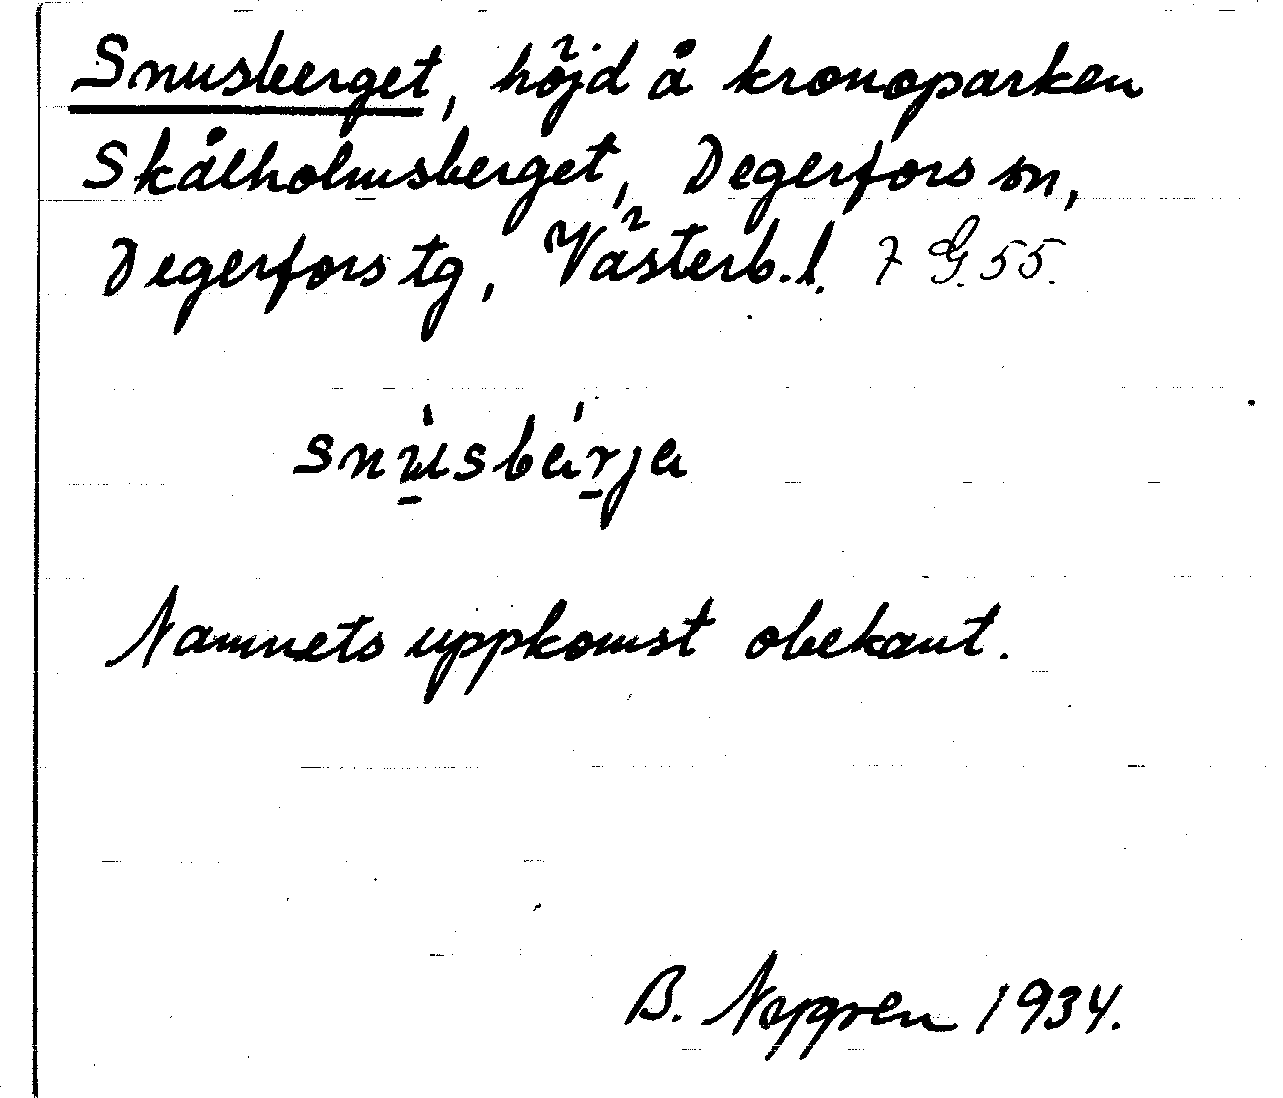 Snusberget, höjd å kronoparken
Skålholmsberget, Degerfors sn,
Degerfors tg, Västerb. l. 7 G. 55.
snùsbárja
Namnets uppkomst obekant.
B. Nygren 1934.